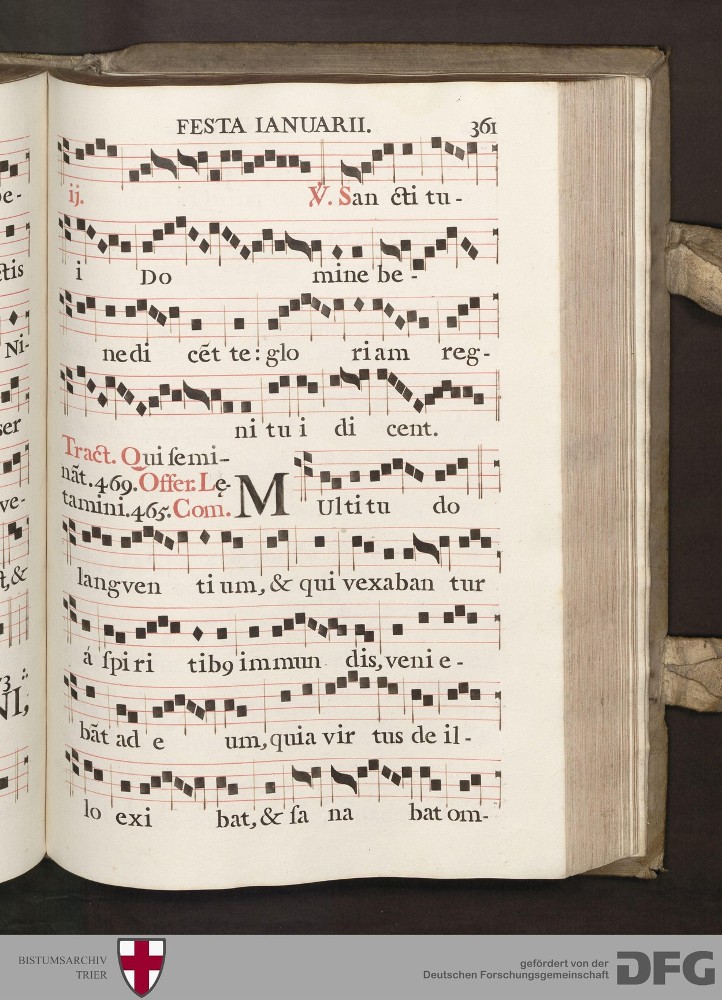 FESTA IANUARII. 361
ij. ℣. San cti tu-
i Do mine be-
nedi cēt te: glo riam reg-
ni tu i di cent.
Tract. Qui semi-
nāt. 469. Offer. Lę-
tamini. 465. Com. M Ultitu do
langven tium, & qui vexaban tur
á spiri tibꝯ immun dis, veni e-
bāt ad e um, quia vir tus de il-
lo exi bat, & sa na bat om-
be-
ctis
Ni-
ser
ve-
t, &
73
NI,
BISTUMSARCHIV
TRIER
gefördert von der
Deutschen Forschungsgemeinschaft
DFG